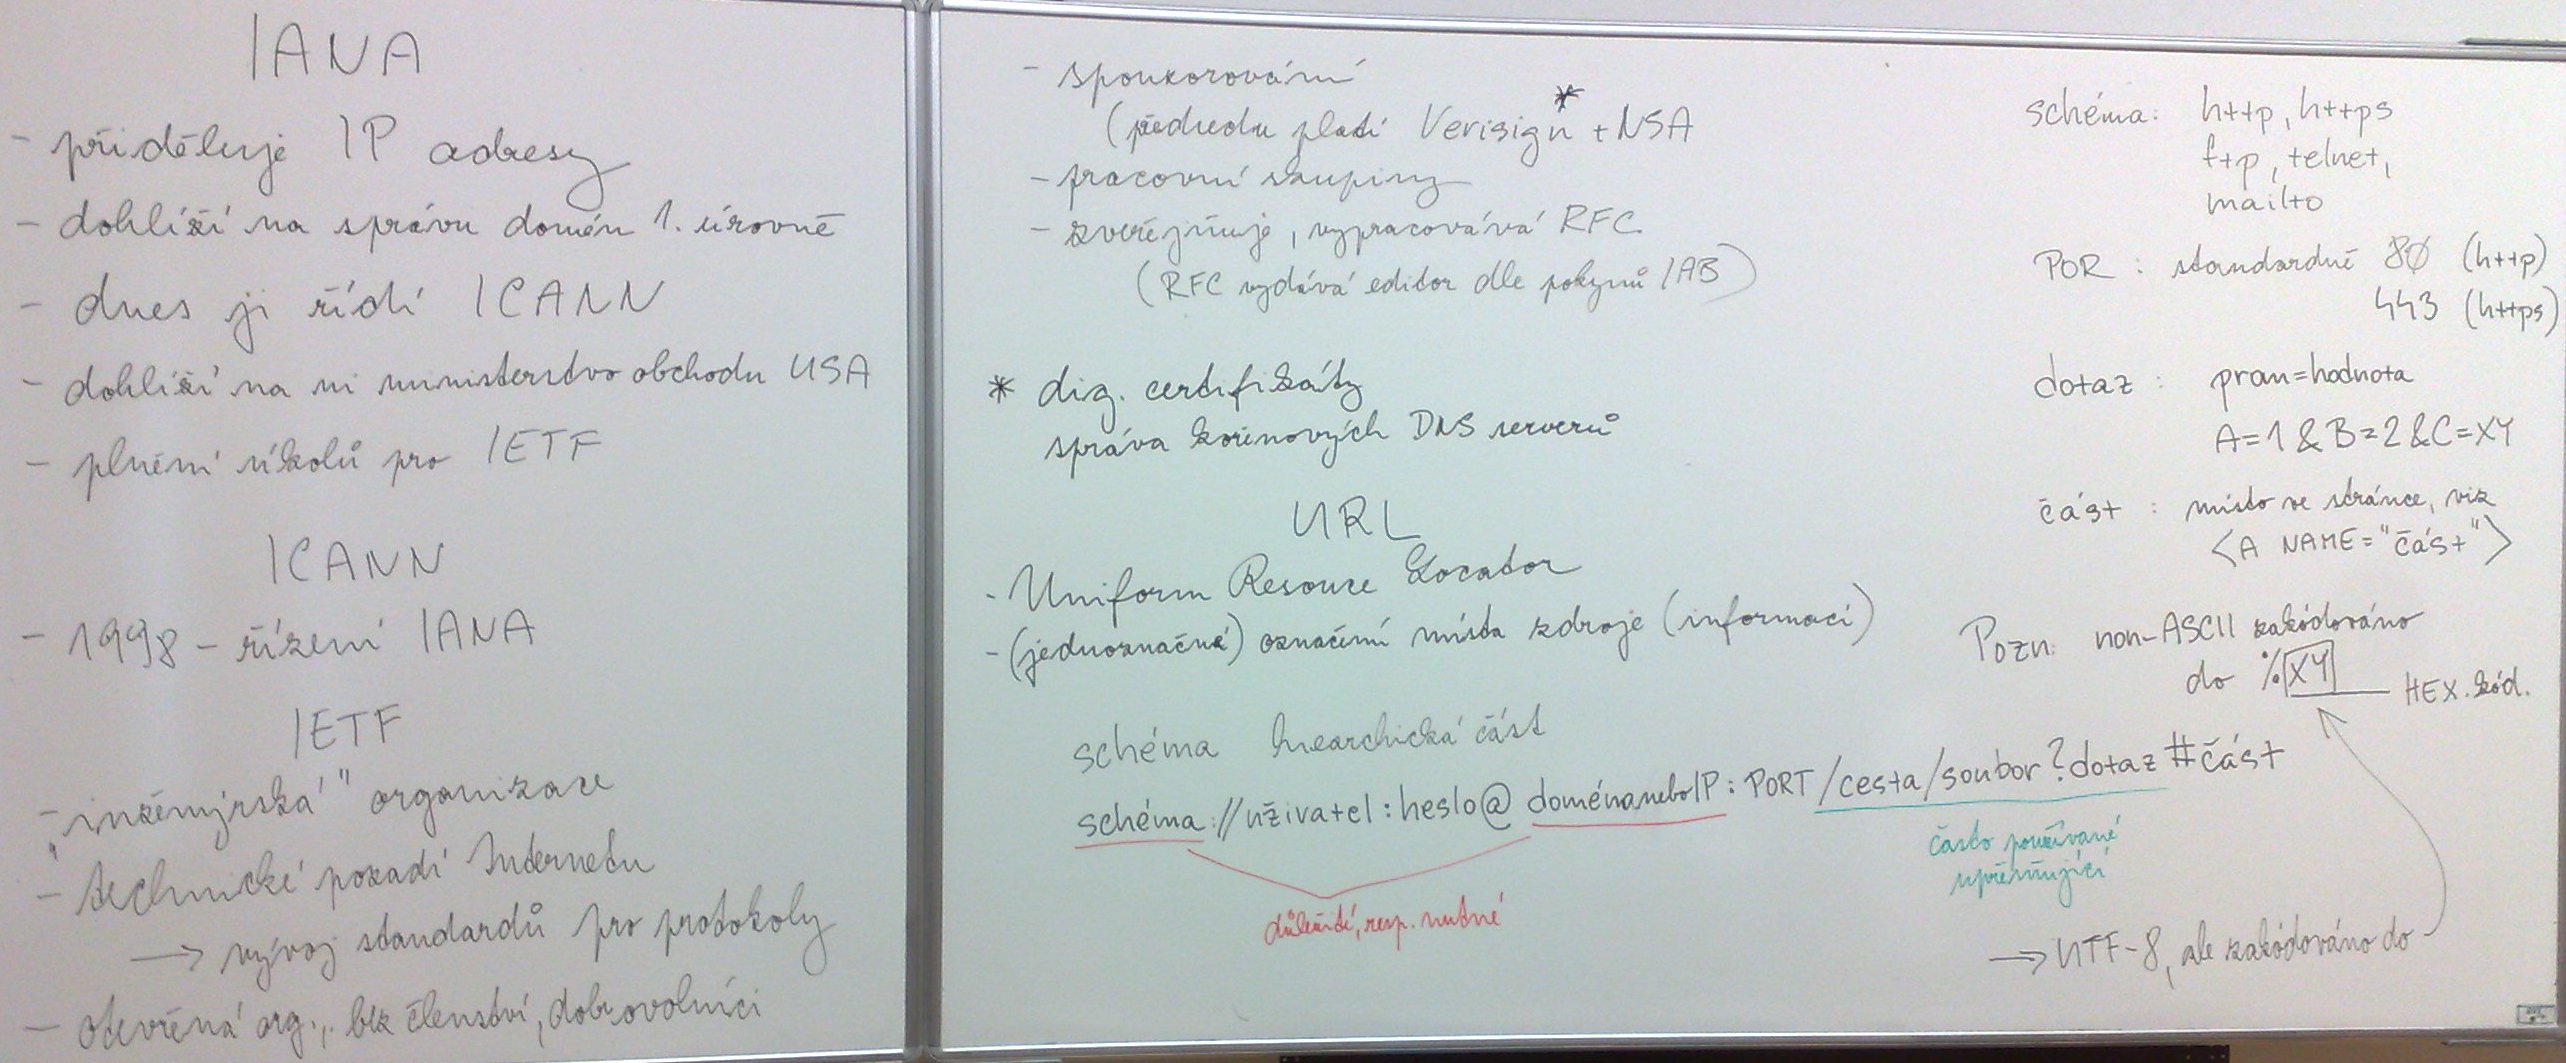 IANA
- přiděluje IP adresy
- dohlíží na správu domén 1. úrovně
- dnes ji řídí ICANN
- dohlíží na ni ministerstvo obchodu USA
- plnění úkolů pro IETF
ICANN
- 1998 - řízení IANA
IETF
- „inženýrská" organizace
- technické pozadí Internetu
→ vývoj standardů pro protokoly
- otevřená org., bez členství, dobrovolníci
- sponzorování
(předsedu platí Verisign* + NSA
- pracovní skupiny
- zveřejňuje, vypracovává RFC
(RFC vydává editor dle pokynů IAB)
* dig. certifikáty
správa kořenových DNS serverů
URL
- Uniform Resource Locator
- (jednoznačné) označení místa zdroje (informací)
schéma hiearchická část
schéma://uživatel:heslo@doménaneboIP:PORT/cesta/soubor?dotaz#část
důležité, resp. nutné
často používané
upřesňující
schéma: http, https
ftp, telnet,
mailto
POR : standardně 80 (http)
443 (https)
dotaz : pram=hodnota
A=1&B=2&C=XY
část : místo ve stránce, viz
<A NAME="část">
Pozn. non-ASCII zakódováno
do %XY HEX. kód.
→ UTF-8, ale zakódováno do